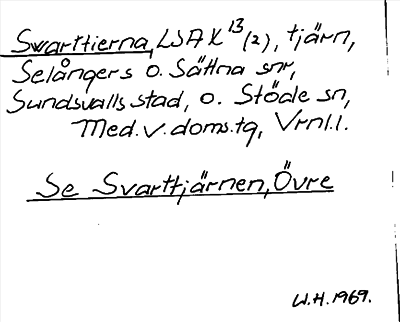 Swarttierna, LSA K¹³ (2), tjärn,
Selångers o. Sättna snr,
Sundsvalls stad, o. Stöde sn,
Med. v. doms. tg, Vrnl. l.
Se Svarttjärnen, Övre
W.H. 1969.